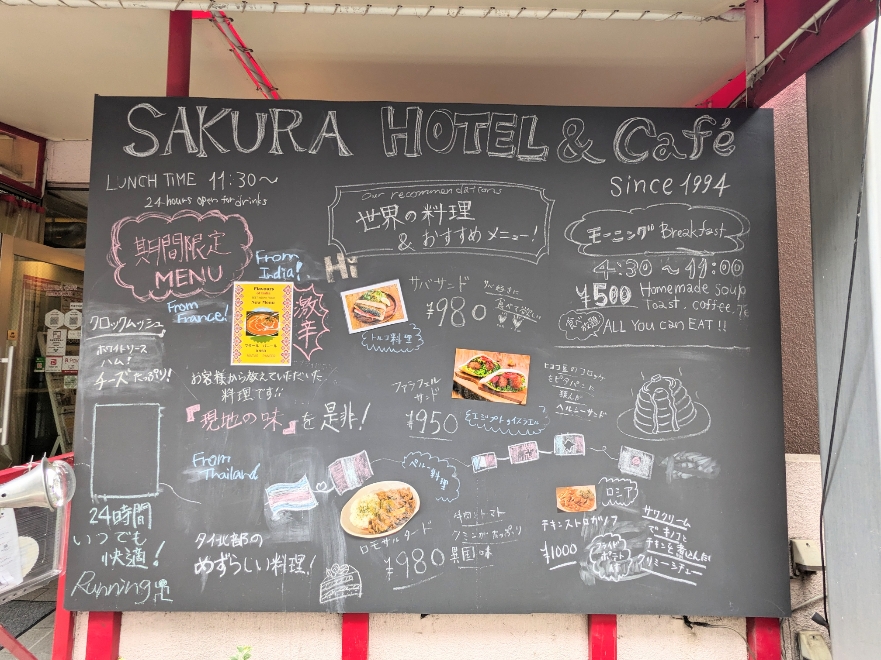 SAKURA HOTEL & Café
LUNCH TIME 11:30～
24-hours open for drinks
Since 1994
期間限定
MENU
Our recommendations
世界の料理
& おすすめメニュー!
モーニング Breakfast
4:30 ～ 11:00
¥500 Homemade soup
Toast. coffee.
食べ放題 ALL You can EAT!!
From
India!
Hi
From
France!
激辛
クロックムッシュ
ホワイトソース
ハム!
チーズたっぷり!
サバサンド
¥980
トルコ料理
お客様から教えていただいた
料理です!!
『現地の味』を是非!
ファラフェル
サンド
¥950
エジプト イスラエル
ヒヨコ豆のコロッケ
をピタパンに
挟んだ
ヘルシーサンド
From
Thailand
タイ北部の
めずらしい料理!
24時間
いつでも
快適!
Running
ペルー料理
ロモサルタード
¥980
牛肉、トマト
クミンがたっぷり
異国の味
ロシア
チキンストロガノフ
¥1000
フライド
ポテト
サワークリーム
でキノコと
チキンを煮込んだ
クリーミーシチュー